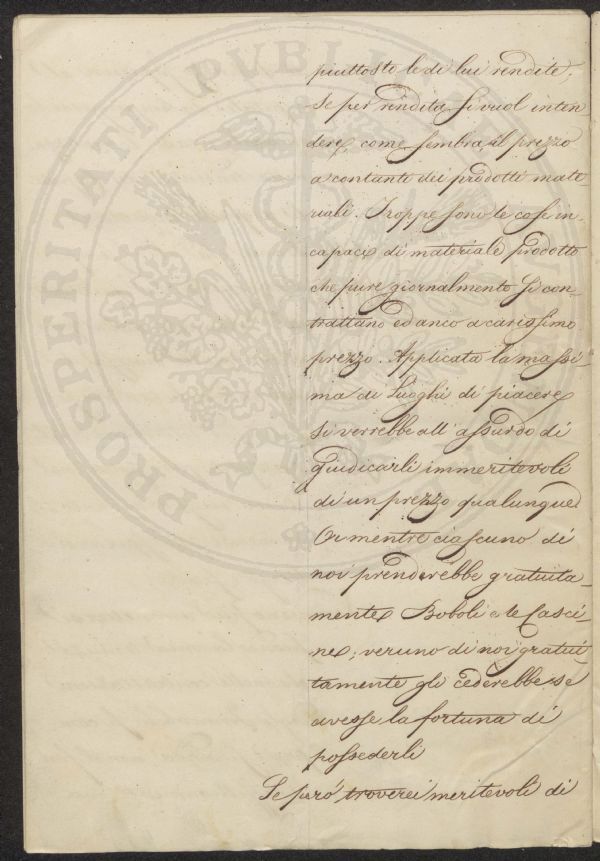 piuttosto le di lui rendite,
se per rendita si vuol inten-
dere come sembra il prezzo
a contanto dei prodotti mate-
riali. Troppe sono le cose in-
capaci di materiale prodotto
che pure giornalmente si con-
trattano ed anco a carissimo
prezzo. Applicata la massi-
ma di Luoghi di piacere
si verrebbe all'assurdo di
giudicarli immeritevoli
di un prezzo qualunque.
Or mentre ciascuno di
noi prenderebbe gratuita-
mente Boboli e le Casci-
ne, veruno di noi gratui-
tamente gli cederebbe se
avesse la fortuna di
possederli
Se però troverei meritevoli di
PROSPERITATI PVBLICAE